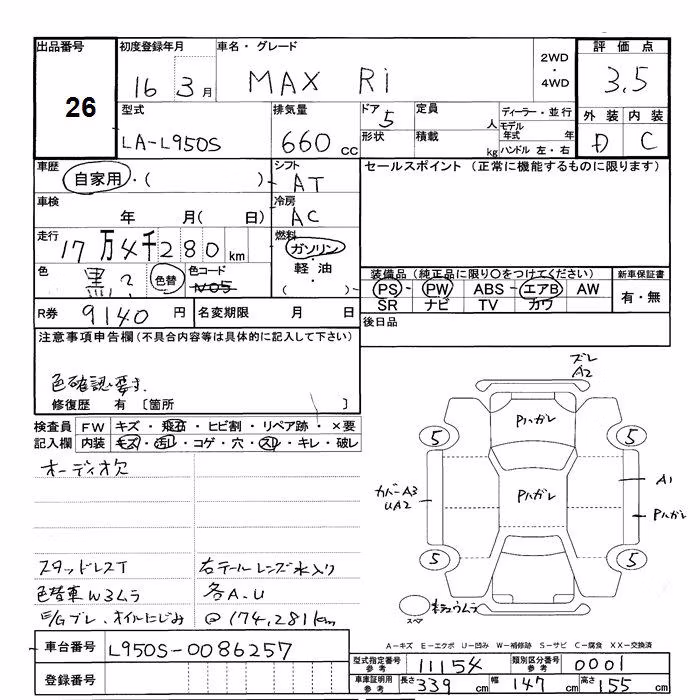 出品番号 初度登録年月 車名・グレード 2WD・4WD 評価点
26 16 3月 MAX Ri 3.5
型式 排気量 ドア 5 定員 人 ディーラー・並行 外装 内装
LA-L950S 660cc 形状 積載 kg モデル年式 年 ハンドル 左・右 D C
車歴 自家用・( ) シフト AT セールスポイント (正常に機能するものに限ります)
車検 年 月( 日) 冷房 AC
走行 17万4千280km 燃料 ガソリン・軽油・( )
色 黒? 色替 色コード N05
装備品 (純正品に限り○をつけてください) 新車保証書
PS・PW・ABS・エアB・AW 有・無
SR ナビ TV カワ
R券 9140円 名変期限 月 日 後日品
注意事項申告欄(不具合内容等は具体的に記入して下さい)
色確認要す.
修復歴 有 〔箇所 〕
検査員 FW キズ・飛石・ヒビ割・リペア跡・×要
記入欄 内装 キズ・汚レ・コゲ・穴・スレ・キレ・破レ
オーディオ欠
スタッドレスT 右テールレンズ水入り
色替車W3ムラ 各A.U
E/Gブレ、オイルにじみ @174,281km
ズレ
A2
Pハガレ
5 5
Pハガレ
カバーA3
UA2
A1
Pハガレ
5 5
スペア
A-キズ E-エクボ U-凹み W-補修跡 S-サビ C-腐食 XX-交換済
車台番号 L950S-0086257
型式指定番号 参考 11154 類別区分番号 参考 0001
登録番号
車庫証明用 参考 長さ 339cm 幅 147cm 高さ 155cm